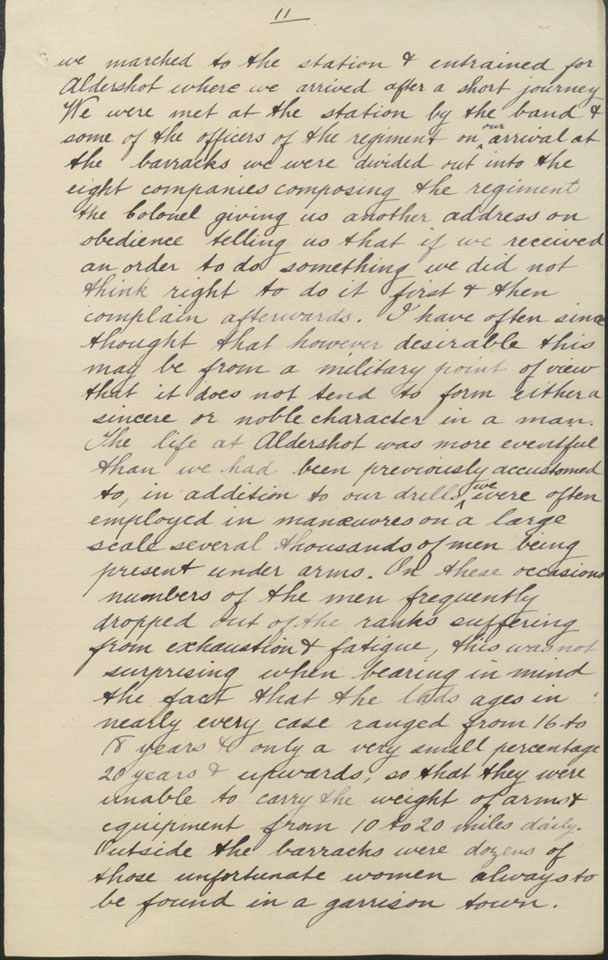 11
we marched to the station & entrained for
Aldershot where we arrived after a short journey
We were met at the station by the band &
some of the officers of the regiment on our arrival at
the barracks we were divided out into the
eight companies composing the regiment
the Colonel giving us another address on
obedience telling us that if we received
an order to do something we did not
think right to do it first & then
complain afterwards. I have often since
thought that however desirable this
may be from a military point of view
that it does not tend to form either a
sincere or noble character in a man.
The life at Aldershot was more eventful
than we had been previously accustomed
to, in addition to our drills we were often
employed in manœuvres on a large
scale several thousands of men being
present under arms. On these occasions
numbers of the men frequently
dropped out of the ranks suffering
from exhaustion & fatigue, this was not
surprising when bearing in mind
the fact that the lads ages in
nearly every case ranged from 16 to
18 years & only a very small percentage
20 years & upwards, so that they were
unable to carry the weight of arms &
equipment from 10 to 20 miles daily.
Outside the barracks were dozens of
those unfortunate women always to
be found in a garrison town.